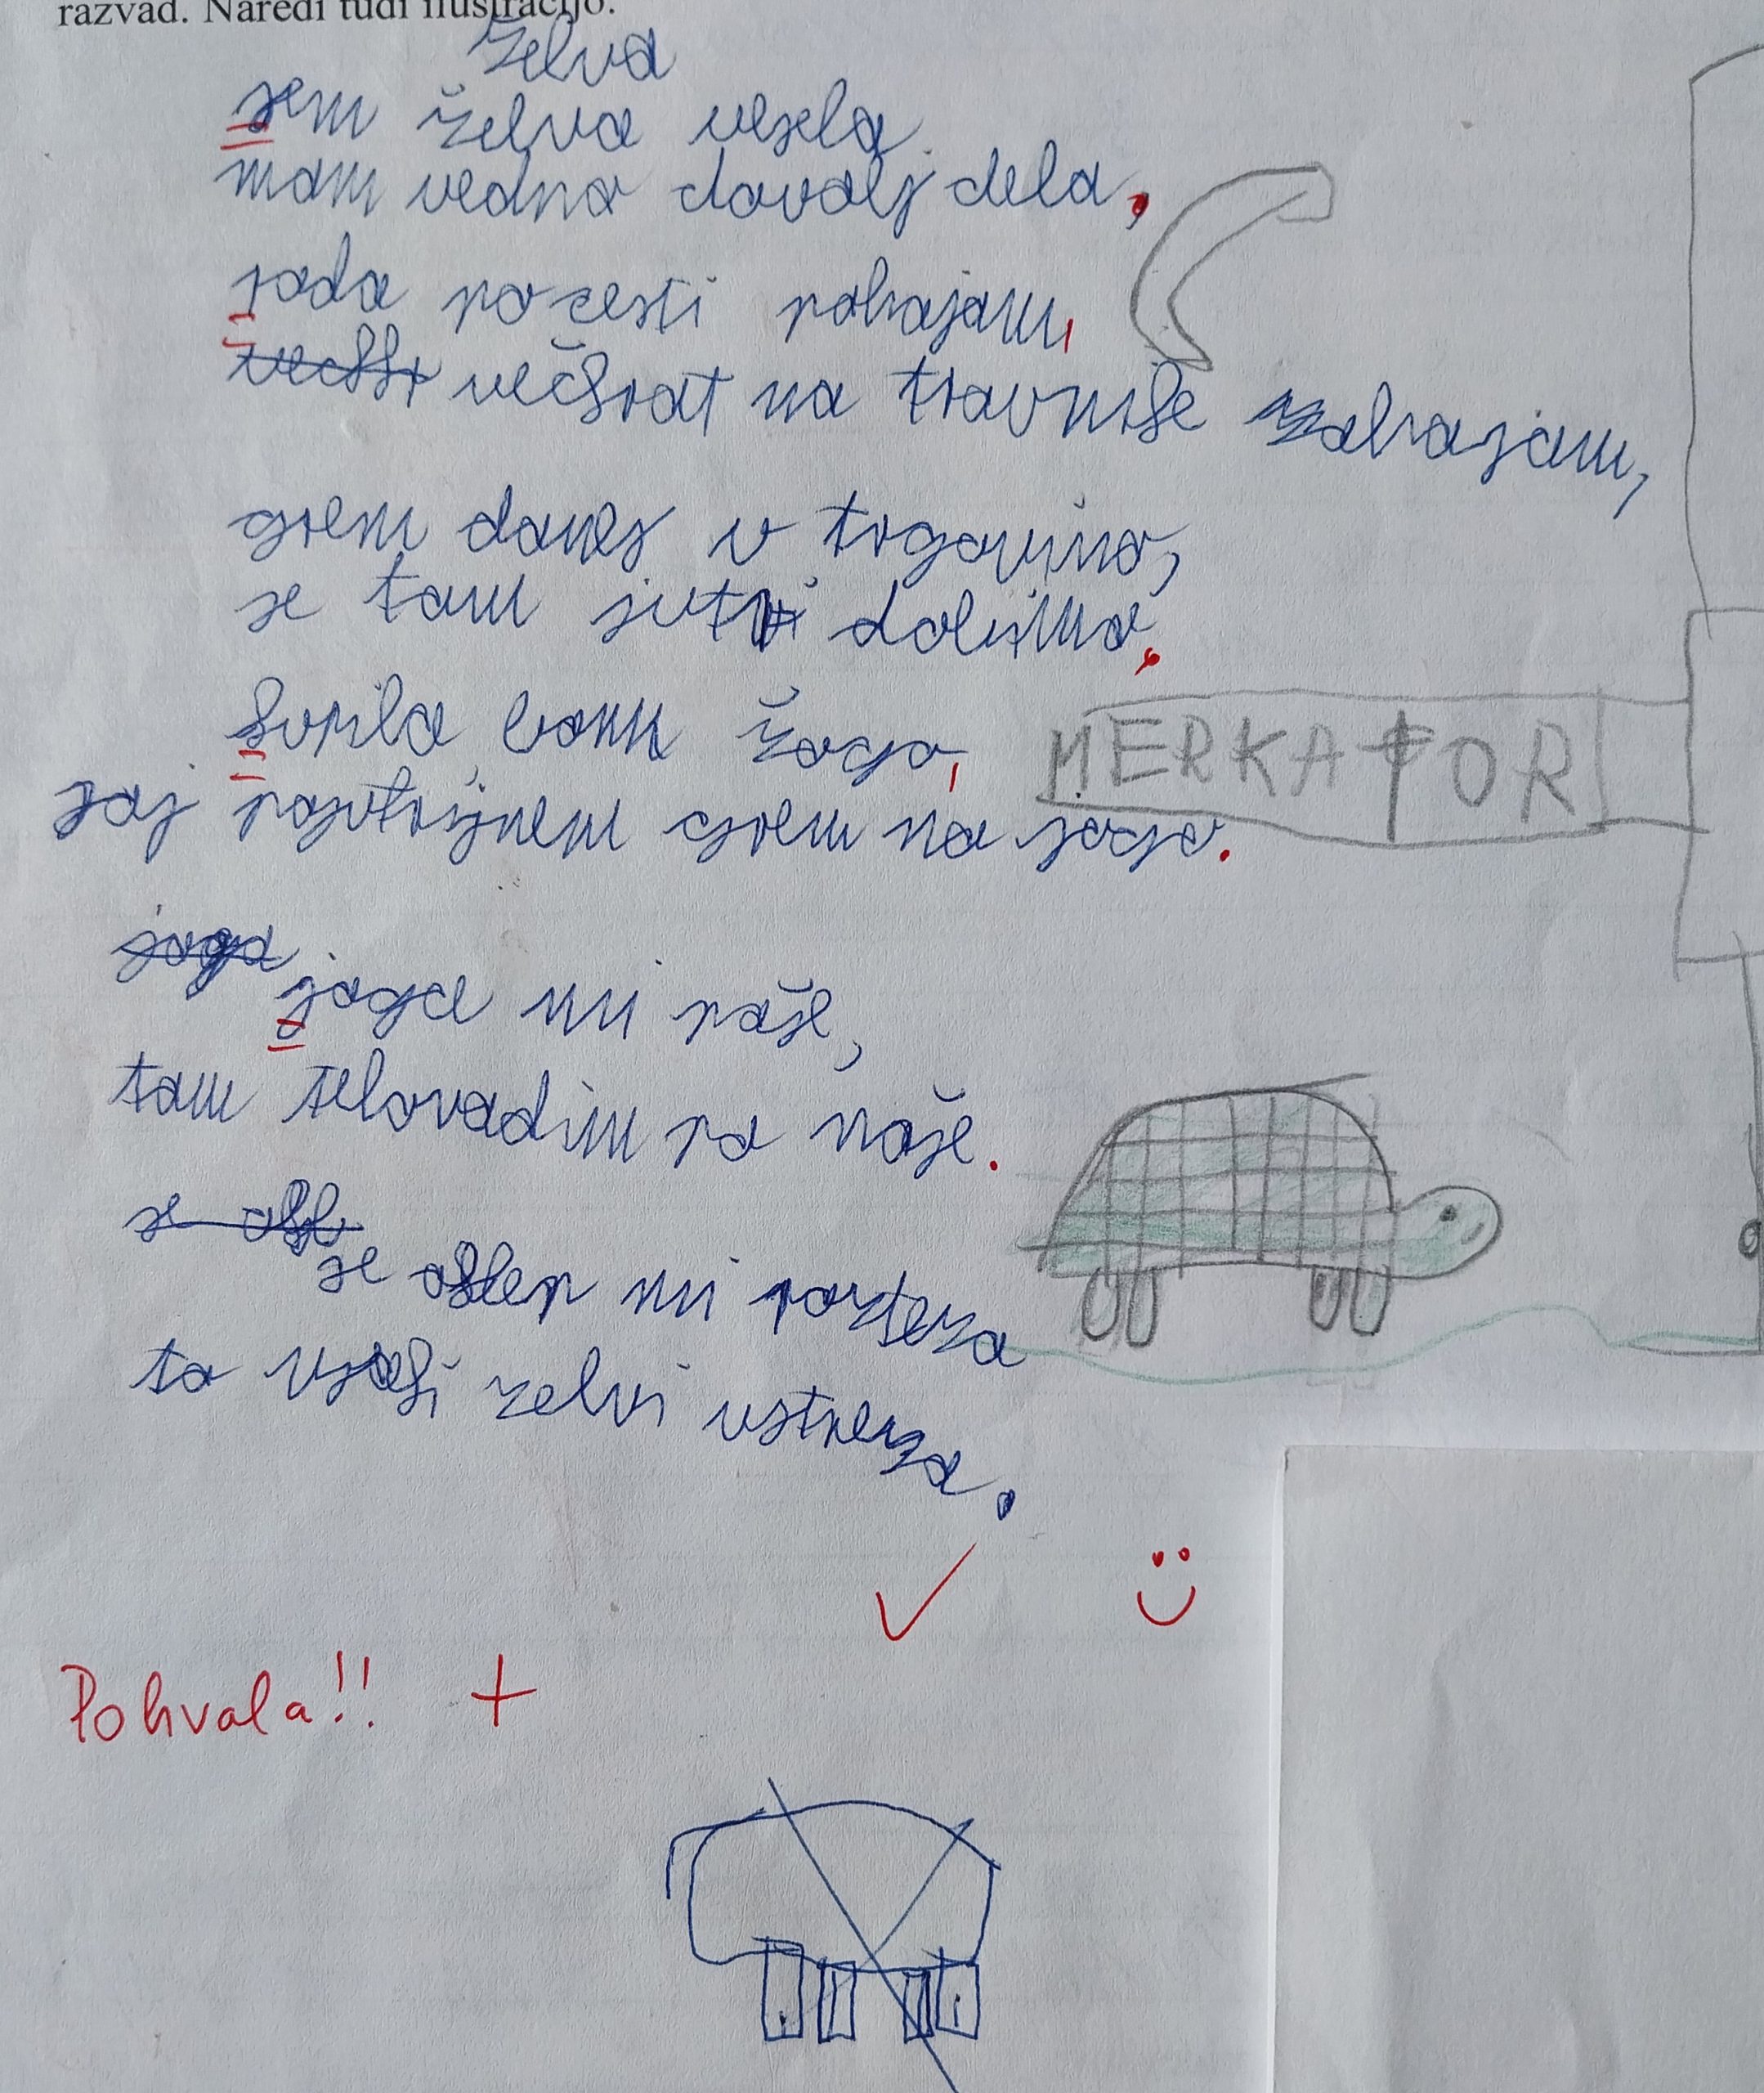 razvad. Naredi tudi ilustracijo.
Želva
sem želva vesela
mam vedno dovolj dela,
rada po cesti pohajam,
večkrat na travnike zahajam,
grem danes v trgovino,
se tam jutri dobimo.
kupila bom žogo,
saj pojutrišnem grem na jogo.
MERKATOR
joga
joga mi paše,
tam telovadim po naše.
se oklep mi razteza
to vsaki zelvi ustreza.
Pohvala!! +